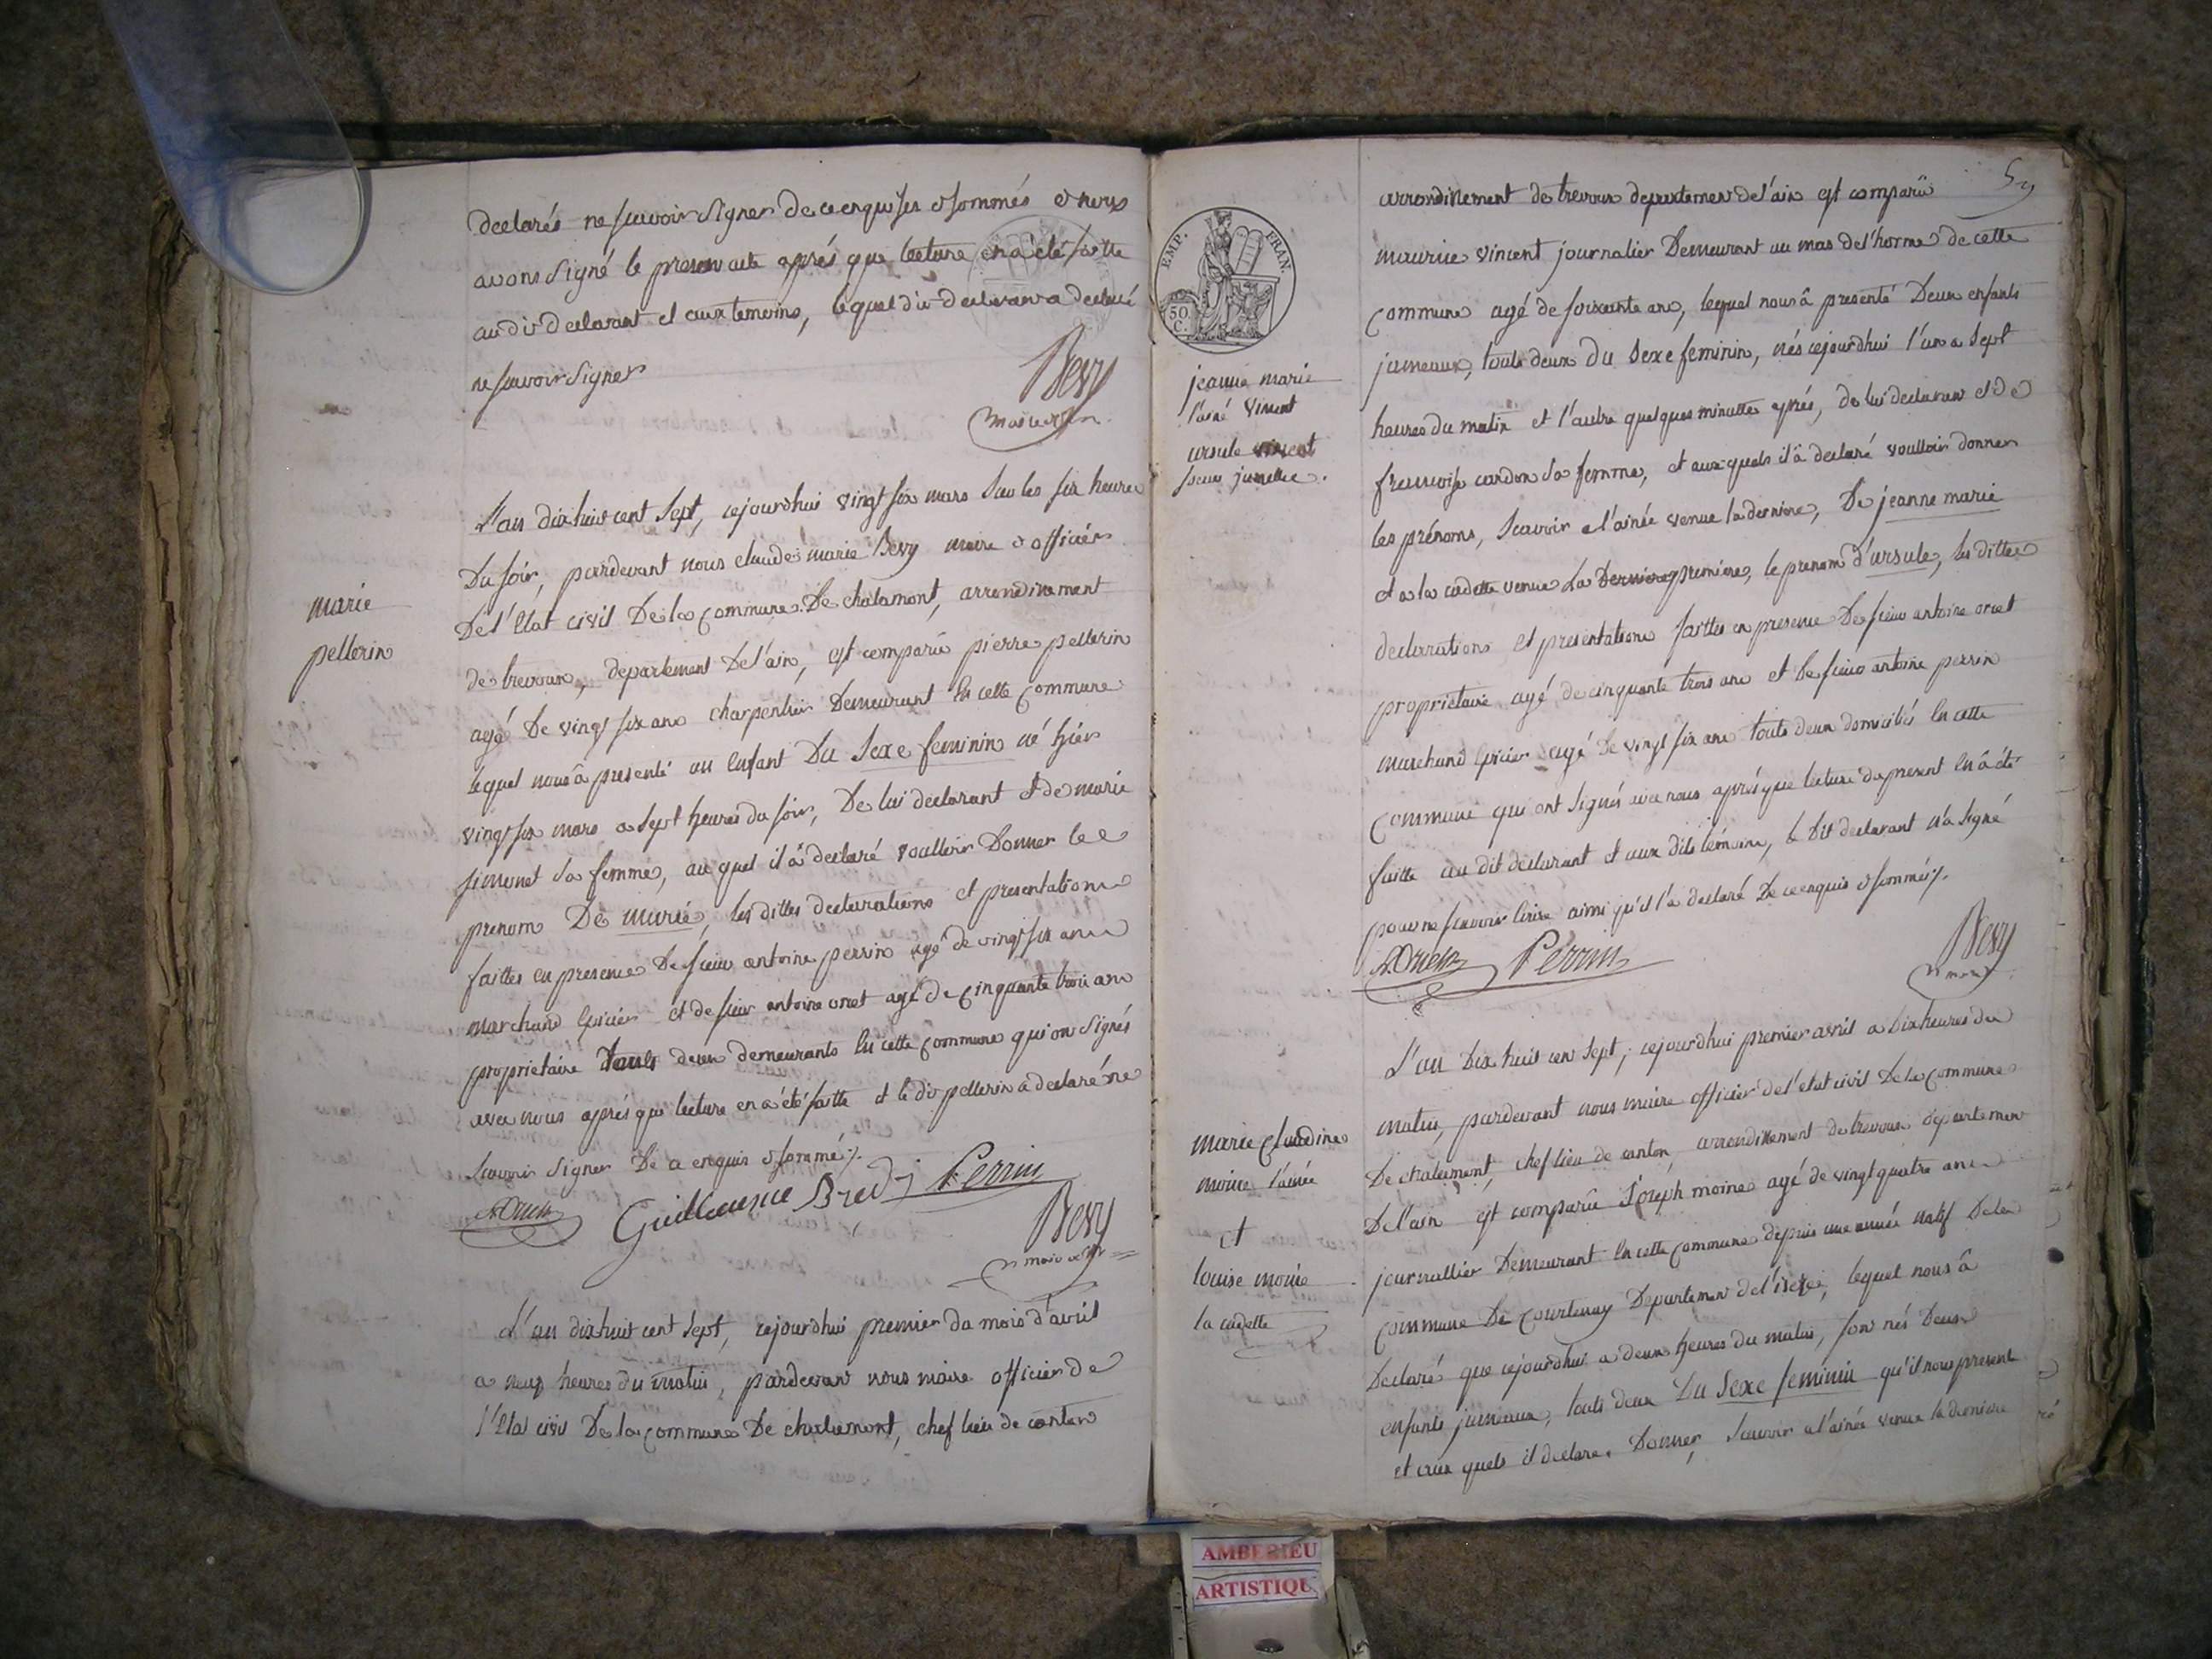 declarés ne scavoir signer de ce enquises et sommés et nous
avons signé le present acte aprés que lecture en a été faitte
au dit declarant et aux temoins, lequel dit declarant a declaré
ne scavoir signer
Bevy
maire
L'an dix huit cent sept, cejourdhui vingt six mars sur les six heures
du soir, pardevant nous claude marie Bevy maire et officier
de l'Etat civil de la commune de chalamont, arrondissement
de trevoux, departement de l'ain, est comparû pierre pellerin
agé de vingt six ans charpentier demeurant en cette commune
lequel nous â presenté un enfant du sexe feminin né hier
vingt six mars a sept heures du soir, de lui declarant et de marie
simonet sa femme, au quel il â declaré voulloir donner le
prenom de marie, les dittes declarations et presentations
faittes en presence de sieur antoine perrin agé de vingt six ans
marchand Epicier et de sieur antoine oret agé de cinquante trois ans
proprietaire touts deux demeurants en cette commune qui ont signés
avec nous aprés que lecture en a été faitte et le dit pellerin a declaré ne
scavoir signer de ce enquis et sommé ./.
marie
pellerin
Guillaume Perrin
Bevy
maire
L'an dix huit cent sept, cejourdhui premier du mois d'avril
a neuf heures du matin, pardevant nous maire officier de
l'Etat civil de la commune de chalamont, chef lieu de canton
59
EMP. FRAN.
50
C.
arrondissement de trevoux departement de l'ain est comparû
maurice vincent journalier demeurant au mas de l'horme de cette
commune agé de soixante ans, lequel nous â presenté deux enfants
jumeaux, touts deux du sexe feminin, nés cejourdhui l'un a sept
heures du matin et l'autre quelques minuttes aprés, de lui declarant et de
francoise cardon sa femme, et aux quels il â declaré voulloir donner
les prénoms, scavoir a l'ainée venue la derniere, de jeanne marie
et a la cadette venue la derniere premiere, le prenom d'ursule, les dittes
declarations et presentations faittes en presence de sieur antoine oret
proprietaire agé de cinquante trois ans et de sieur antoine perrin
marchand Epicier agé de vingt six ans touts deux domiciliés en cette
commune qui ont signés avec nous aprés que lecture du present en â été
faitte au dit declarant et aux dits temoins, le dit declarant n'a signé
pour ne scavoir Ecrire ainsi qu'il l'a declaré de ce enquis et sommé ./.
jeanne marie
l'ainé vincent
ursule vincent
soeur jumelle.
Perrin
Bevy
maire
L'an dix huit cent sept, cejourdhui premier avril a dix heures du
matin, pardevant nous maire officier de l'etat civil de la commune
de chalamont, chef lieu de canton, arrondissement de trevoux departement
de l'ain est comparû Joseph moine agé de vingt quatre ans
journallier demeurant en cette commune depuis une année natif de la
commune de Courtenay departement de l'isere, lequel nous â
declaré que cejourdhui a deux heures du matin, sont nés deux
enfants jumeaux, touts deux du sexe feminin qu'il nous presente
et aux quels il declare donner, scavoir a l'ainée venue la derniere
marie claudine
moine l'ainée
et
louise moine
la cadette
AMBERIEU
ARTISTIQUE